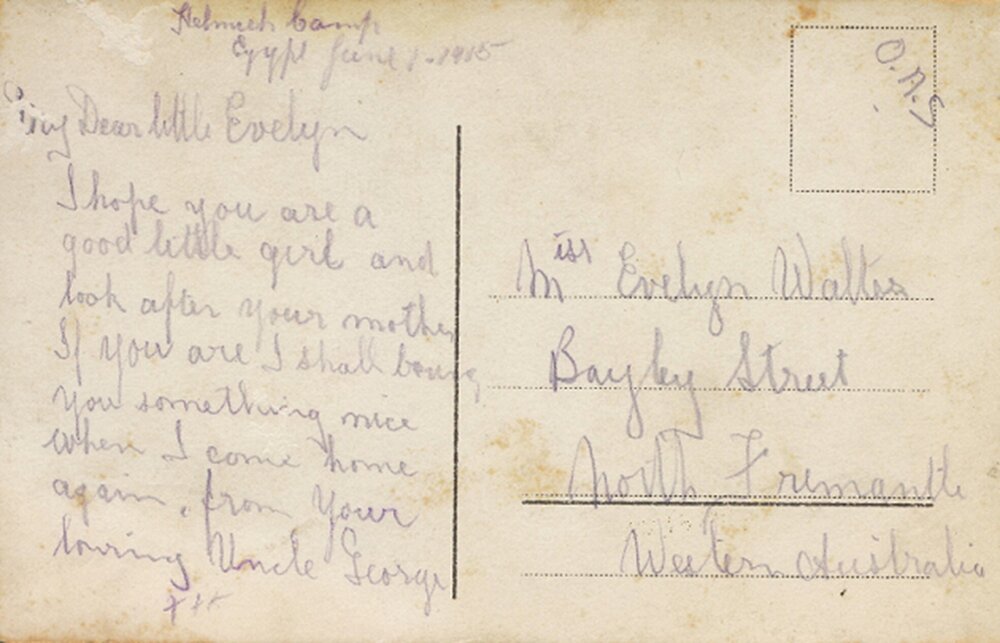 Helmieh Camp
Egypt June 1. 1915
My Dear little Evelyn
I hope you are a
good little girl and
look after your mother
If you are I shall bring
you something nice
when I come home
again, from your
loving Uncle George
xxx
O.A.S
Miss Evelyn Walters
Bayley Street
North Fremantle
Western Australia